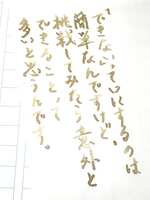 できないって口にするのは
簡単なんですけど、
挑戦してみたら意外と
できることって
多いと思うんです。